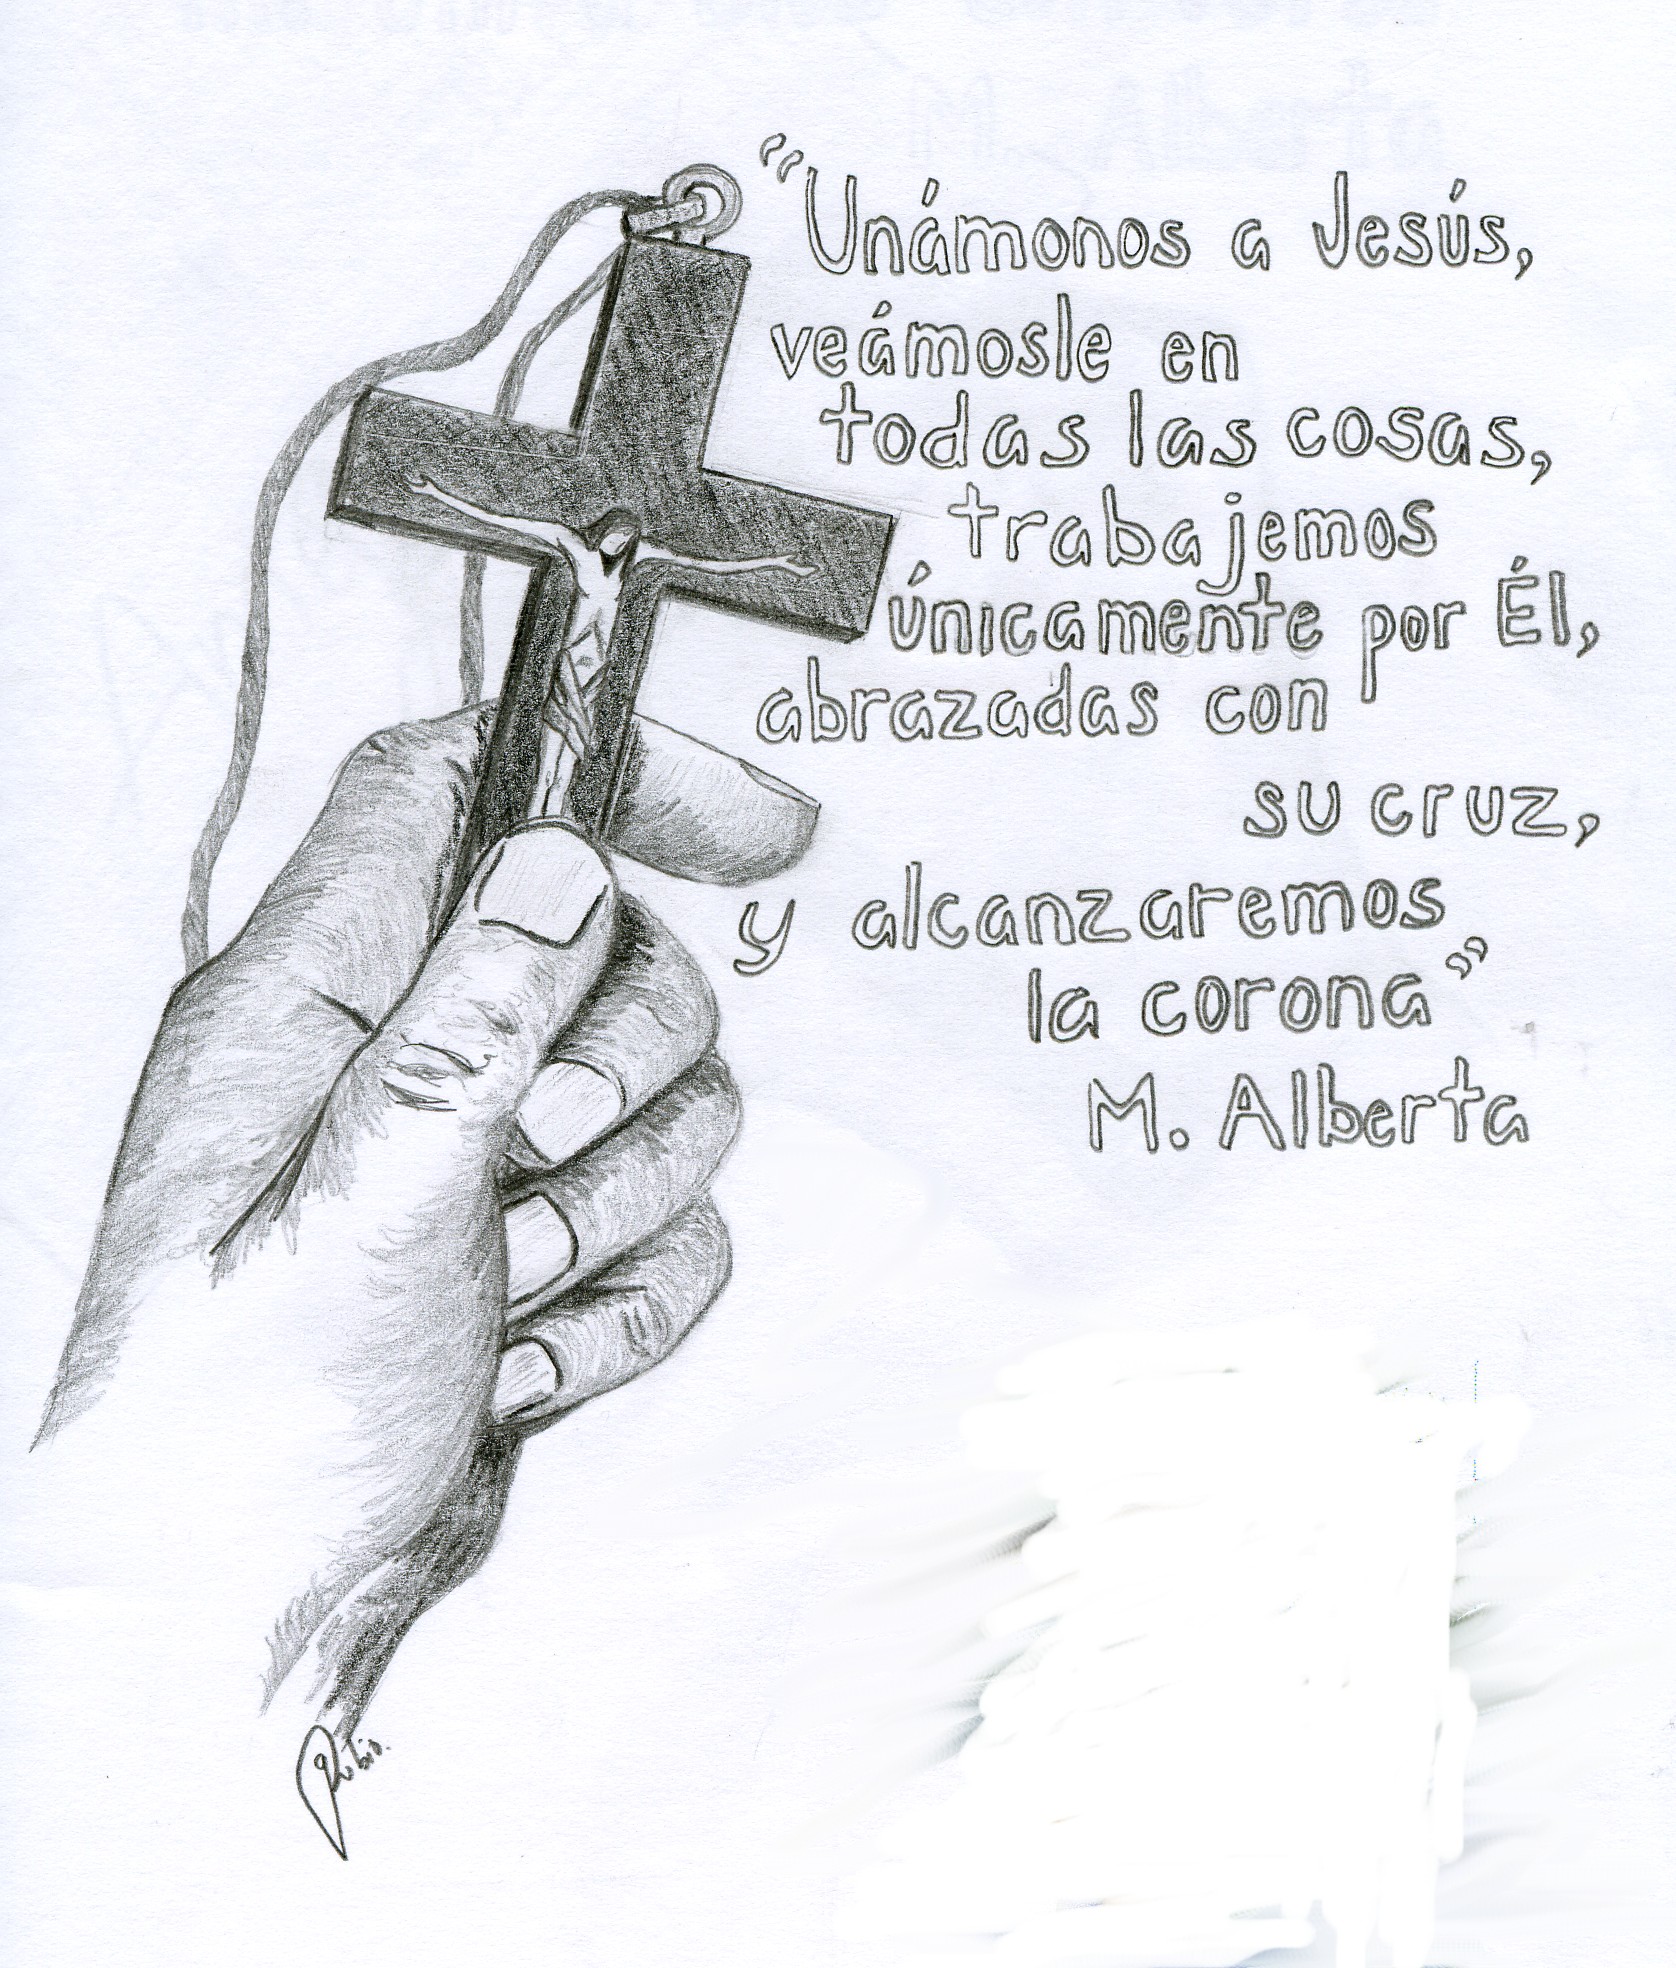 “Unámonos a Jesús,
veámosle en
todas las cosas,
trabajemos
únicamente por Él,
abrazadas con
su cruz,
y alcanzaremos
la corona”
M. Alberta
Rubio.